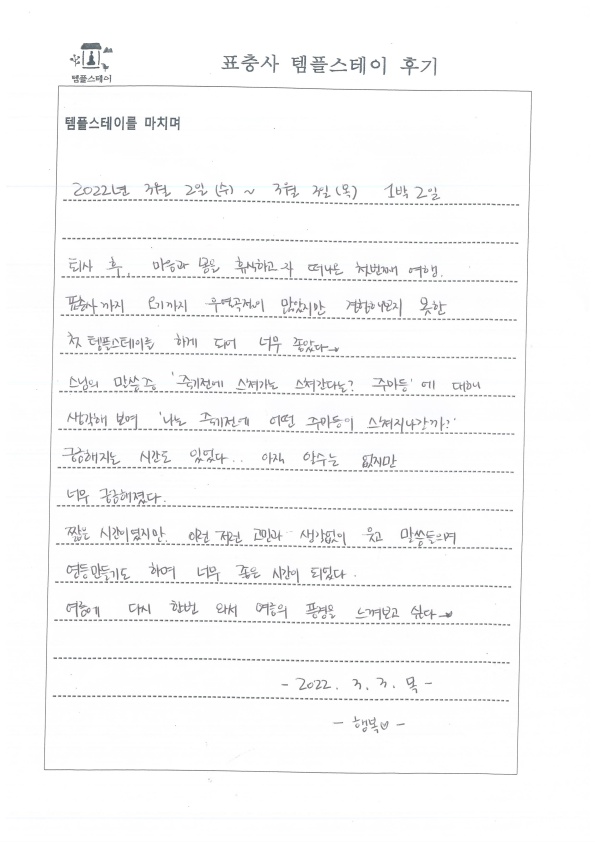 템플스테이
표충사 템플스테이 후기
템플스테이를 마치며
2022년 3월 2일(수) ~ 3월 3일(목) 1박 2일
퇴사 후, 마음과 몸을 휴식하고자 떠나온 첫번째 여행.
표충사까지 오기까지 우연곡절이 많았지만 경험해보지 못한
첫 템플스테이를 하게 되어 너무 좋았다
스님의 말씀중 '죽기전에 스쳐가는 스쳐간다는? 주마등'에 대해
생각해 보며 '나는 죽기전에 어떤 주마등이 스쳐지나갈까?'
궁금해지는 시간도 있었다.. 아직 알수는 없지만
너무 궁금해졌다.
짧은 시간이였지만 이런 저런 고민과 생각없이 웃고 말씀들으며
연등만들기도 하며 너무 좋은 시간이 되었다.
여름에 다시 한번 와서 여름의 풍경을 느껴보고 싶다
- 2022. 3. 3. 목 -
- 행복♡ -